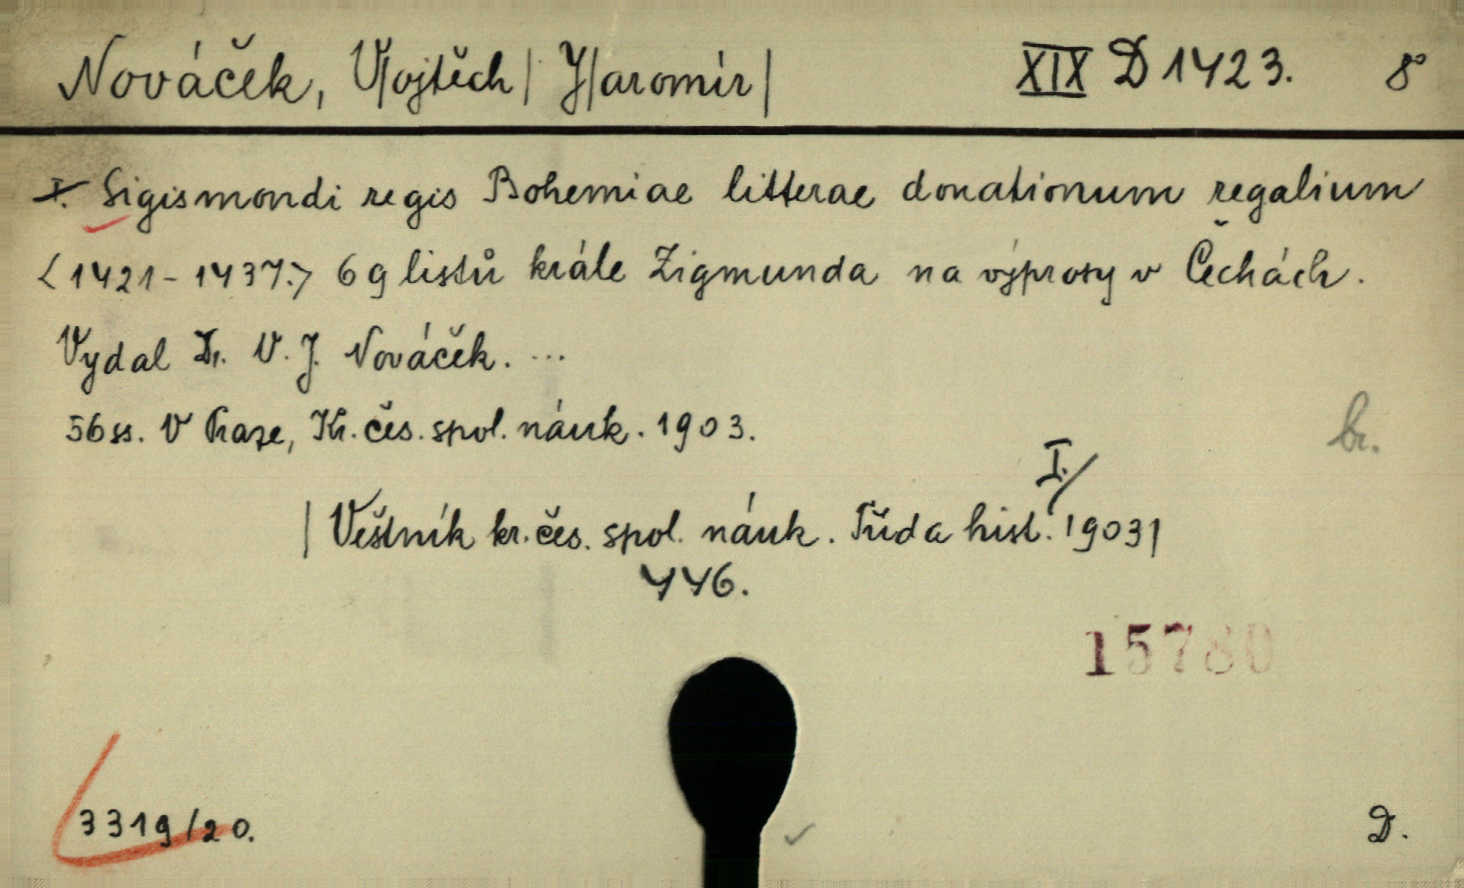 Nováček, V|ojtěch| J|aromír| XIX D 1423. 8°
I. Sigismondi regis Bohemiae litterae donationum regalium
<1421-1437.> 69 listů krále Zigmunda na výprosy v Čechách.
Vydal Dr. V. J. Nováček. ...
56 ss. V Praze, Kr. čes. spol. náuk. 1903.
br.
I./
|Věstník kr. čes. spol. náuk. Třída hist. 1903|
446.
15780
3319/20.
D.